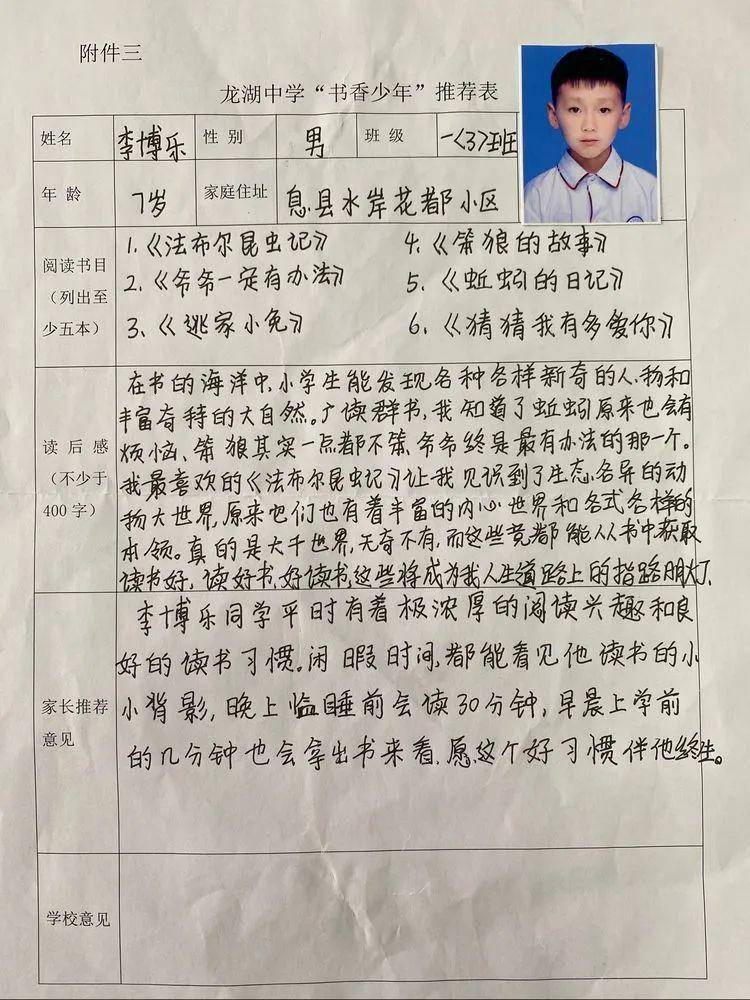 附件三
龙湖中学“书香少年”推荐表
姓名 李博乐 性别 男 班级 一〈3〉班
年龄 7岁 家庭住址 息县水岸花都小区
阅读书目
（列出至
少五本）
1.《法布尔昆虫记》 4.《笨狼的故事》
2.《爷爷一定有办法》 5.《蚯蚓的日记》
3、《逃家小兔》 6.《猜猜我有多爱你》
读后感
（不少于
400字）
在书的海洋中，小学生能发现各种各样新奇的人、物和
丰富奇特的大自然。广读群书，我知道了蚯蚓原来也会有
烦恼、笨狼其实一点都不笨、爷爷终是最有办法的那一个。
我最喜欢的《法布尔昆虫记》让我见识到了生态各异的动
物大世界，原来它们也有着丰富的内心世界和各式各样的
本领。真的是大千世界，无奇不有，而这些竟都能从书中获取
读书好，读好书，好读书，这些将成为我人生道路上的指路明灯.
家长推荐
意见
李博乐同学平时有着极浓厚的阅读兴趣和良
好的读书习惯。闲暇时间，都能看见他读书的小
小背影，晚上临睡前会读30分钟，早晨上学前
的几分钟也会拿出书来看，愿这个好习惯伴他终生。
学校意见